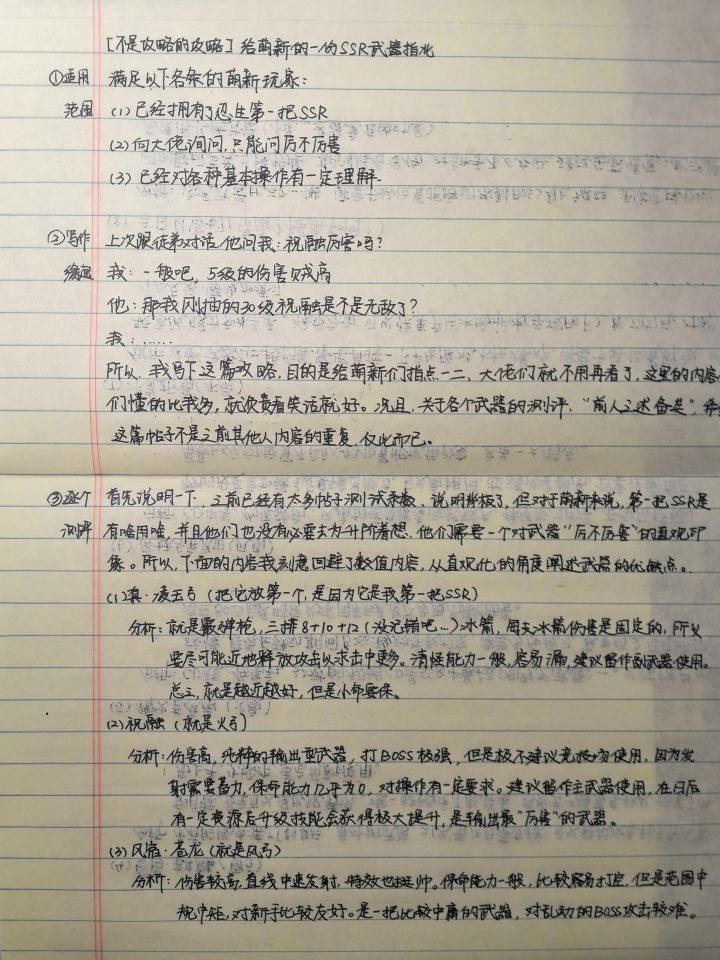 [不是攻略的攻略]给萌新的一份SSR武器指北
①适用 满足以下各条的萌新玩家:
范围 (1)已经拥有了忍生第一把SSR
(2)向大佬询问,只能问厉不厉害
(3)已经对各种基本操作有一定理解.
②写作 上次跟徒弟对话,他问我:祝融厉害吗?
缘起 我:一般吧,5级的伤害贼高
他:那我刚抽的30级祝融是不是无敌了?
我:……
所以,我写下这篇攻略,目的是给萌新们指点一二,大佬们就不用再看了,这里的内容
们懂的比我多,就浪费看笑话就好。况且,关于各个武器的测评,“前人之述备矣”,希
这篇帖子不是之前其他人内容的重复,仅此而已。
③逐个 首先说明一下,之前已经有太多帖子测试系数、说明势极了,但对于萌新来说,第一把SSR是
测评 有啥用啥,并且他们也没有必要去为升阶着想,他们需要一个对武器“厉不厉害”的直观印
象。所以,下面的内容我刻意回避了数值内容,从直观化的角度阐述武器的优缺点。
(1)真·凌云弓(把它放第一个,是因为它是我第一把SSR)
分析:就是霰弹枪,三排8+10+12(没记错吧...)冰箭,每支冰箭伤害是固定的,所以
要尽可能近地释放攻击以求击中更多。清怪能力一般,容易漏,建议留作副武器使用。
总之,就是越近越好,但是小命要保。
(2)祝融(就是火弓)
分析:伤害高,纯粹的输出型武器,打BOSS极强,但是极不建议竞技场使用,因为发
射需要蓄力,保命能力几乎为0,对操作有一定要求。建议留作主武器使用,在日后
有一定资源后升级技能会获得极大提升,是输出最“厉害”的武器。
(3)风宿·苍龙(就是风弓)
分析:伤害较高,直线中速发射,特效也挺帅。保命能力一般,比较容易打空,但是范围中
规中矩,对新手比较友好。是一把比较中庸的武器,对乱动的BOSS攻击较难。